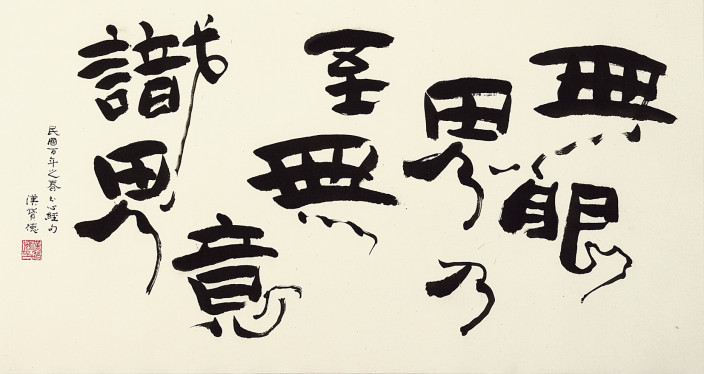 無眼
界乃
至無
意
識界
民國百年之春心經句
漢寶德